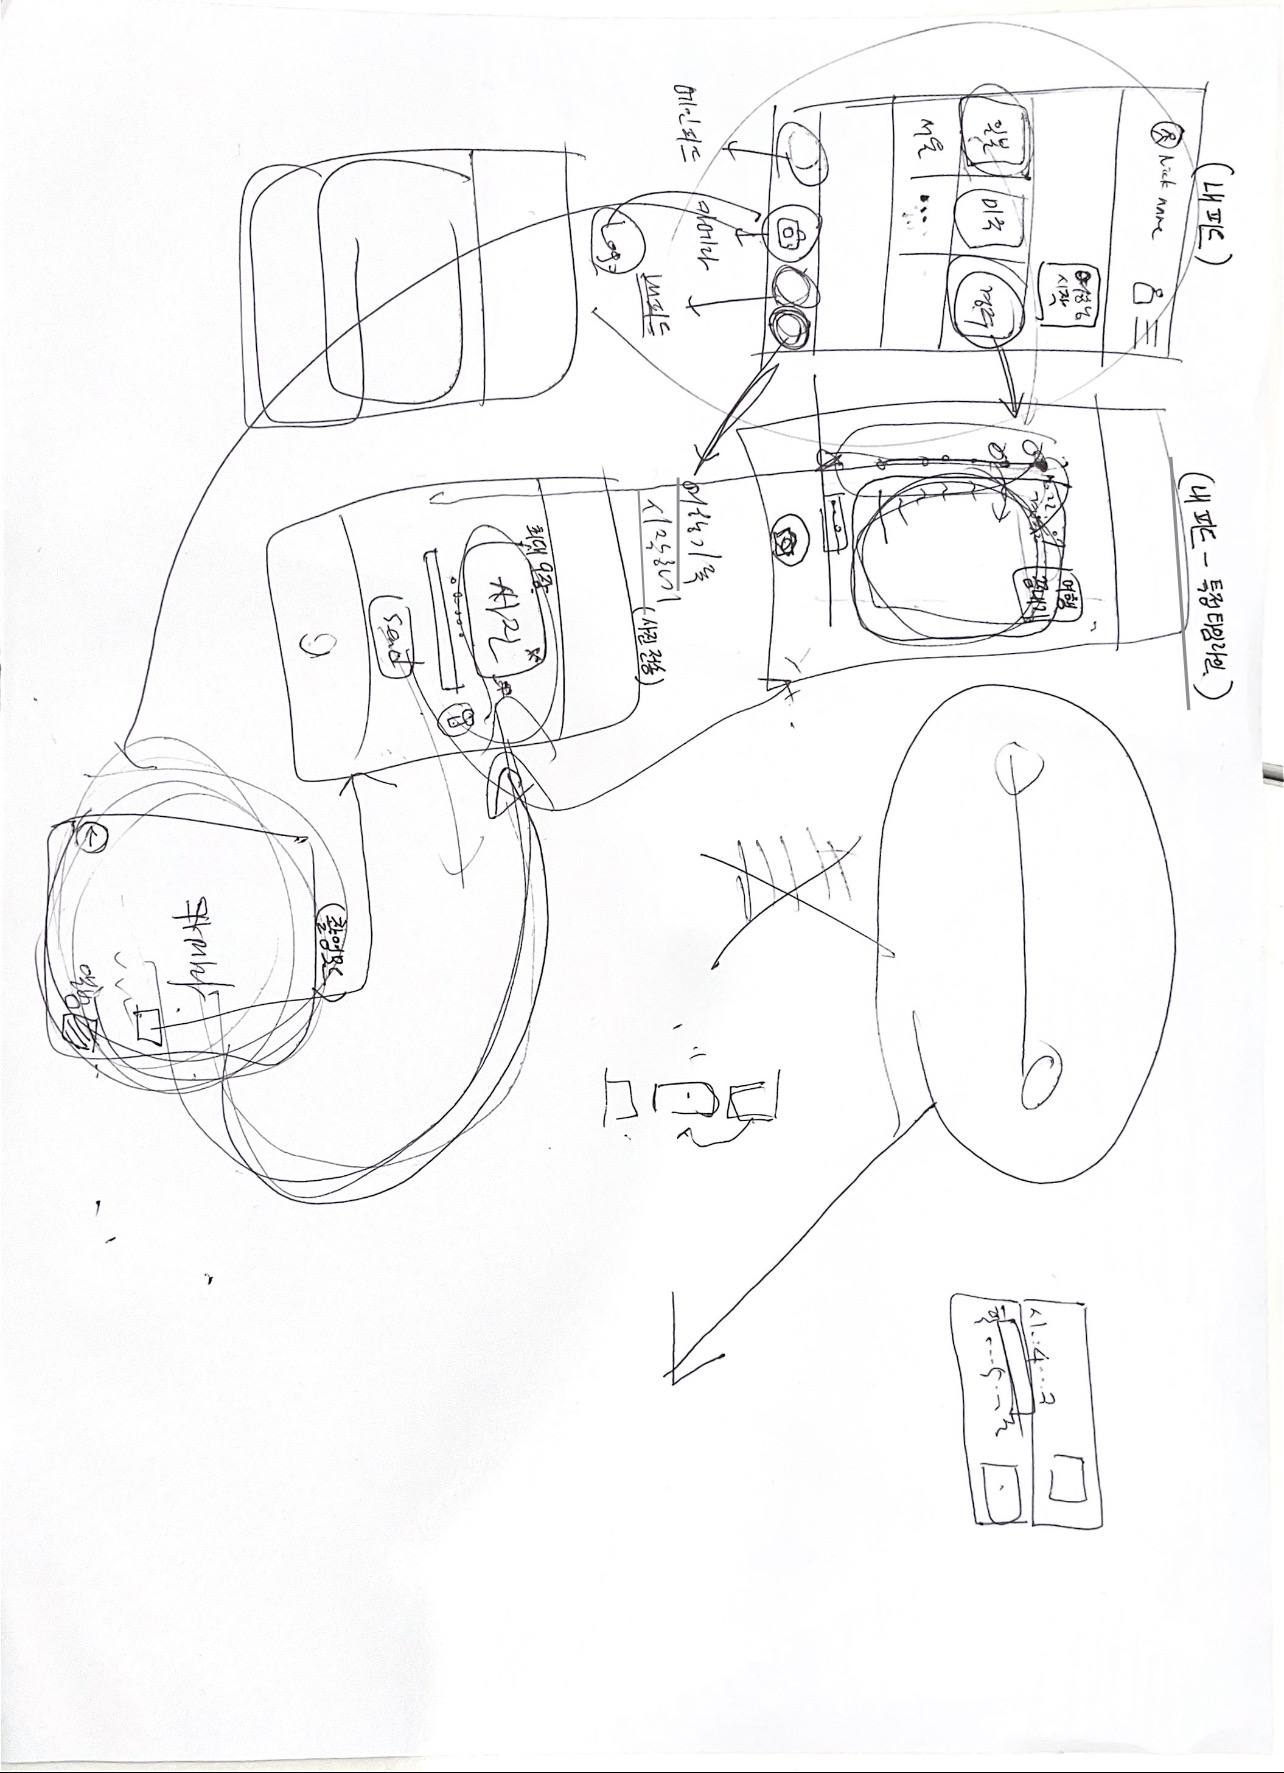 (내 피드)
Nick name
여행
시작
일본
미국
경주
서울
메인피드
카메라
내피드
Log
(내 피드 - 특정타임라인)
여행
끝내기
여행기록
시작하기
(사진 전송)
최대 9장
사진
Send
(촬영모드)
카메라
앨범